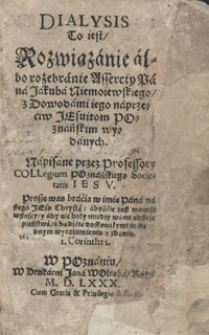 DIALYSIS
To iest/
Rozwiązánie ál-
bo rozebránie Asserciy Pá
ná Jakubá Niemoiewskiego/
z Dowodámi iego náprze-
ćiw JEsuitom PO-
znáńskim wy-
dánych.
Nápisáne przez Professory
COLLegium POznáńskiego Socie-
tatis IESV.
Proszę was bráćia w imię Páná ná-
szego JEsu Chrystá/ ábyśćie toż mowili
wszyscy/ y áby nie były miedzy wámi
w ie-
dnym wyrozumieniu y zdániu.
1. Corinth: 1.
W POznániu/
W Drukárni Janá Wolrábá/ Roku
M. D. LXXX.
Cum Gratia & Priuilegio S. R. M.